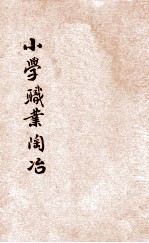 小學職業陶冶